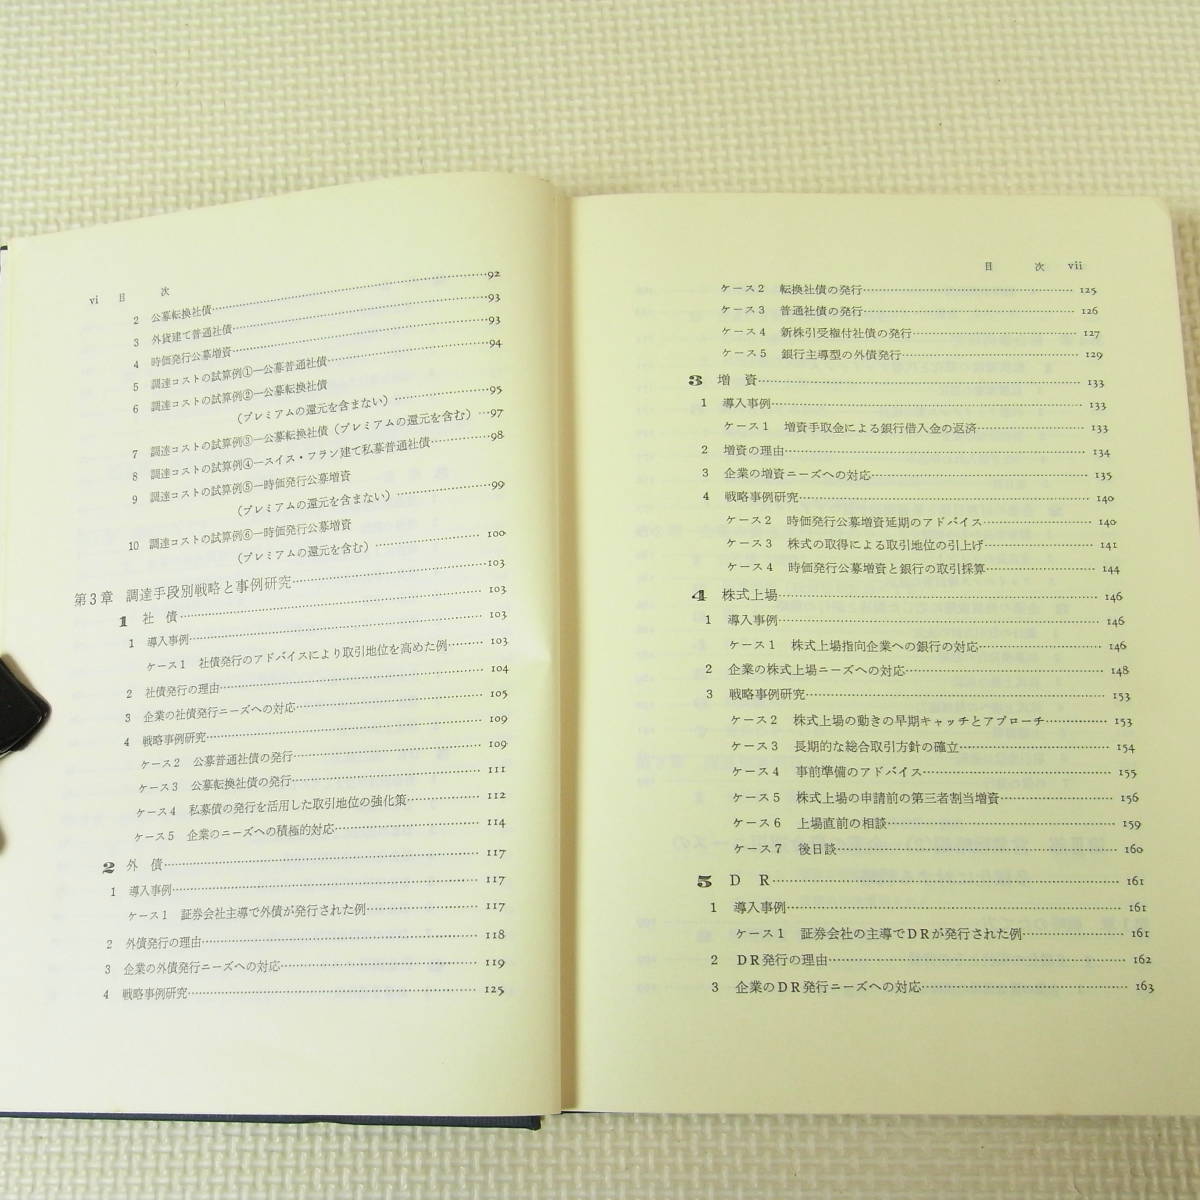 vi　目　　次
2　公募転換社債……92
3　外貨建て普通社債……93
4　時価発行公募増資……93
5　調達コストの試算例①―公募普通社債……94
6　調達コストの試算例②―公募転換社債
（プレミアムの還元を含まない）……95
7　調達コストの試算例③―公募転換社債（プレミアムの還元を含む）…97
8　調達コストの試算例④―スイス・フラン建て私募普通社債……98
9　調達コストの試算例⑤―時価発行公募増資
（プレミアムの還元を含まない）……99
10　調達コストの試算例⑥―時価発行公募増資
（プレミアムの還元を含む）……100
第3章　調達手段別戦略と事例研究……103
1　社　債……103
1　導入事例……103
ケース1　社債発行のアドバイスにより取引地位を高めた例……103
2　社債発行の理由……104
3　企業の社債発行ニーズへの対応……105
4　戦略事例研究……109
ケース2　公募普通社債の発行……109
ケース3　公募転換社債の発行……111
ケース4　私募債の発行を活用した取引地位の強化策……112
ケース5　企業のニーズへの積極的対応……114
2　外　債……117
1　導入事例……117
ケース1　証券会社主導で外債が発行された例……117
2　外債発行の理由……118
3　企業の外債発行ニーズへの対応……119
4　戦略事例研究……125
目　　次　vii
ケース2　転換社債の発行……125
ケース3　普通社債の発行……126
ケース4　新株引受権付社債の発行……127
ケース5　銀行主導型の外債発行……129
3　増　資……133
1　導入事例……133
ケース1　増資手取金による銀行借入金の返済……133
2　増資の理由……134
3　企業の増資ニーズへの対応……135
4　戦略事例研究……140
ケース2　時価発行公募増資延期のアドバイス……140
ケース3　株式の取得による取引地位の引上げ……141
ケース4　時価発行公募増資と銀行の取引採算……144
4　株式上場……146
1　導入事例……146
ケース1　株式上場指向企業への銀行の対応……146
2　企業の株式上場ニーズへの対応……148
3　戦略事例研究……153
ケース2　株式上場の動きの早期キャッチとアプローチ……153
ケース3　長期的な総合取引方針の確立……154
ケース4　事前準備のアドバイス……155
ケース5　株式上場の申請前の第三者割当増資……156
ケース6　上場直前の相談……159
ケース7　後日談……160
5　D　R……161
1　導入事例……161
ケース1　証券会社の主導でDRが発行された例……161
2　DR発行の理由……162
3　企業のDR発行ニーズへの対応……163